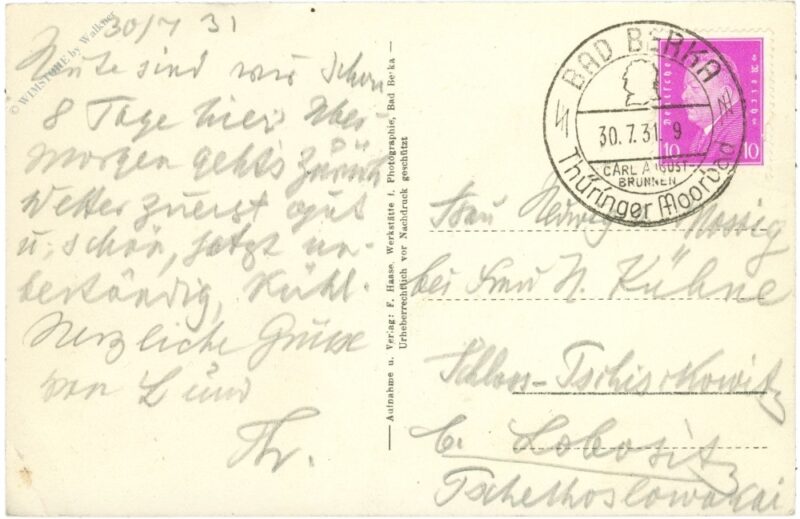 © WIMSTORE by Walkner
30/7 31
Heute sind wir schon
8 Tage hier Über-
morgen gehts zurück
Wetter zuerst gut
u. schön, jetzt un-
beständig, Kühl.
Herzliche Grüsse
von L und
Th.
Aufnahme u. Verlag: F. Haase, Werkstätte f. Photographie, Bad Berka
Urheberrechtlich vor Nachdruck geschützt
BAD BERKA
30.7.31. 9
CARL AUGUST-
BRUNNEN
Thüringer Moorbad
Deutsches Reich
10 10
Frau Hedwig Mossig
bei Frau N. Kühne
Schloss-Tschischkowitz
b. Lobositz
Tschechoslowakei